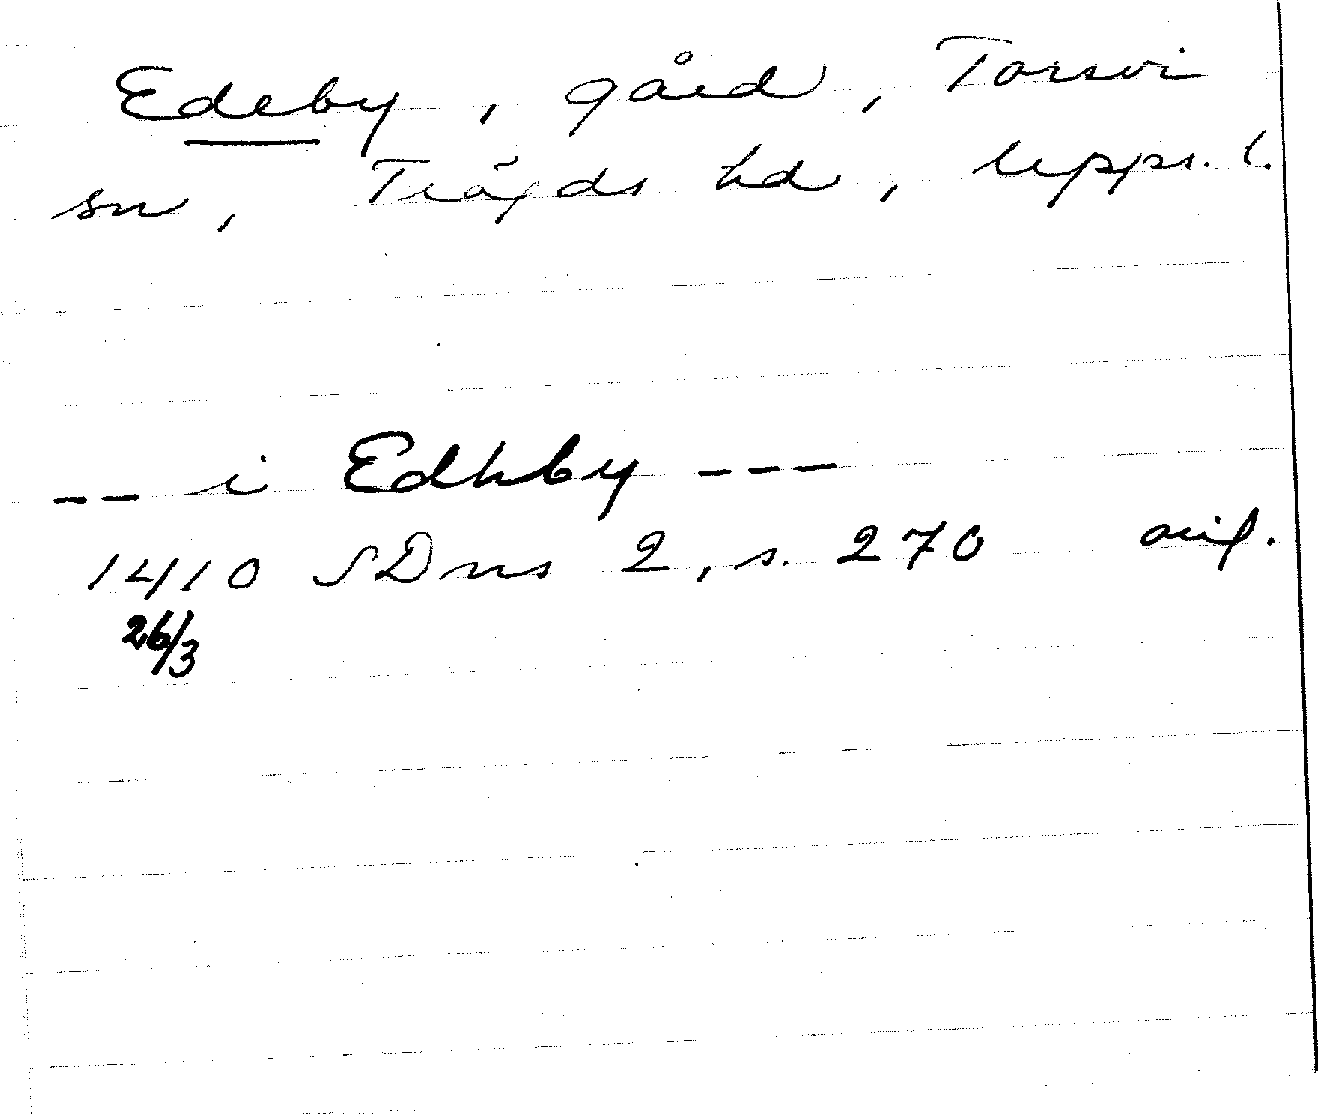 Edeby, gård, Torsvi
sn, Trögds hd, Upps. l.
-- i Edhby ---
1410 SDns 2, s. 270 orig.
26/3